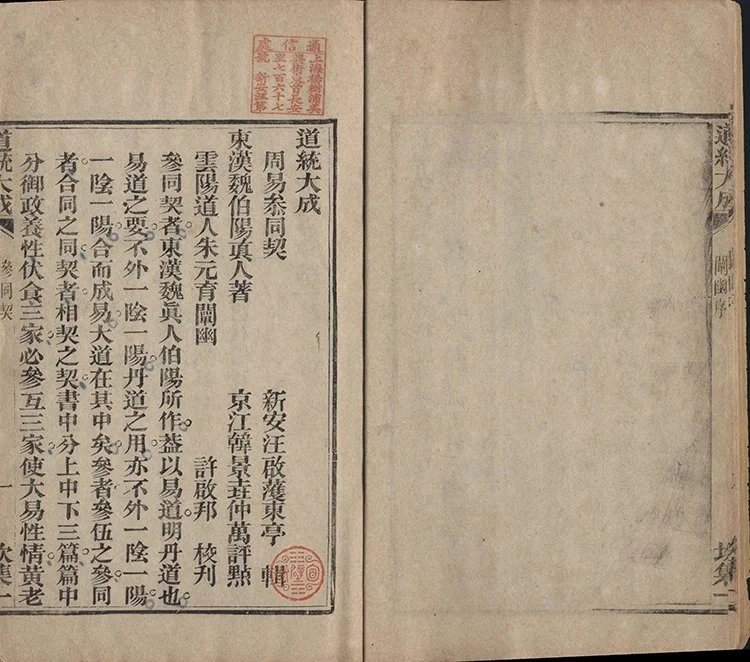 道統大成
闡幽序
坎集一
通信處
上海楊樹浦吳
長安
里七百六十七
號 新安汪第
道統大成
周易叅同契 新安汪啟濩東亭 輯
東漢魏伯陽眞人著 京江韓景垚仲萬評點
雲陽道人朱元育闡幽 許啟邦 校刊
參同契者。東漢魏眞人伯陽所作。葢以易道明丹道也。
易道之要。不外一陰一陽。丹道之用。亦不外一陰一陽。
一陰一陽。合而成易。大道在其中矣。參者。參伍之參。同
者。合同之同。契者。相契之契。書中分上中下三篇。篇中
分御政養性伏食三家。必參互三家。使大易性情。黃老
道統大成
參同契
一
坎集一